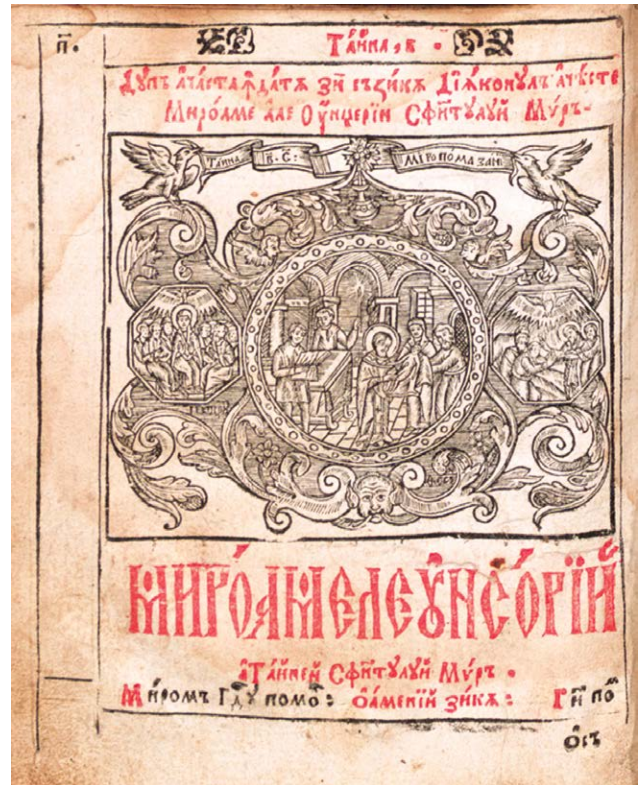 п҃.
Та́йна, в҃ .
Дꙋпъ ача́ста ꙟ҆да́тъ зѝ съзи́кѫ Дїѧ́конꙋлъ аче́сте
Миро́аме але Оу҆нцерїи Сфи́нтꙋлꙋй Мѵ́ръ.
ТАИНА В҃. Є҆: МІРОПОМАЗАНІ
МИРО́АМЕЛЕ ОУНСО́РЇЙ
а Та́йней Сфи́нтꙋлꙋй Мѵ́ръ .
Ми́ромъ Гдꙋ помо : О҆а́менїй зи́кѫ : Гй по